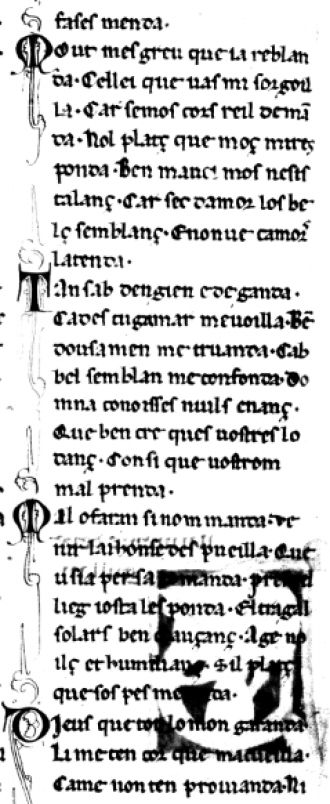 fases menda.
Mout mes greu que ia reblan
da. Cellei que uas mi sorgoil
la. Car semos cors reil demã
da. Nol plaç que moç mi res
ponda. Ben mauci mos nesis
talanç. Car sec damor los be
lç semblanç. E non ue camor
latenda.
Tan sab dengien e de ganda.
Cades cug amar me uoilla. Bẽ
dousamen me truanda. Cab
bel semblan me confonda. Do
mna conoisses nuils enanç.
Que ben cre ques uostres lo
danç. Con si que uostrom
mal prenda.
Mal o faran si nom manda. ue
nir lai honse despueilla. Que
u sia per sa comanda. pres del
lieg iosta lesponda. E
solars ben cauçanç. A ge no
ilç et humilianç. Sil plaç
que sos pes
Dieus que tot lo mon garanda.
Li me ten cor que macueilla.
Came non ten prouianda. Ni